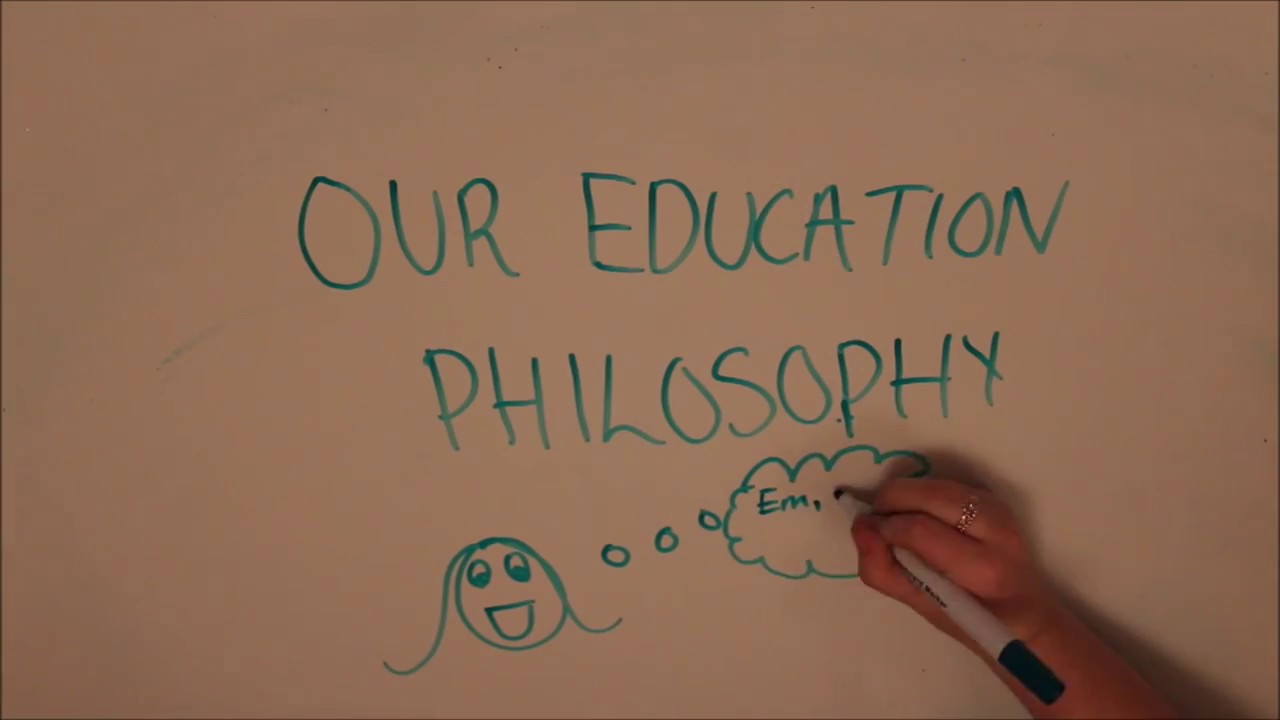 OUR EDUCATION
PHILOSOPHY
Em,